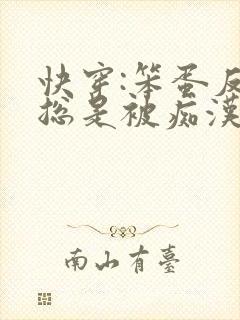 快穿:笨蛋反
总是被痴漢
南山有臺